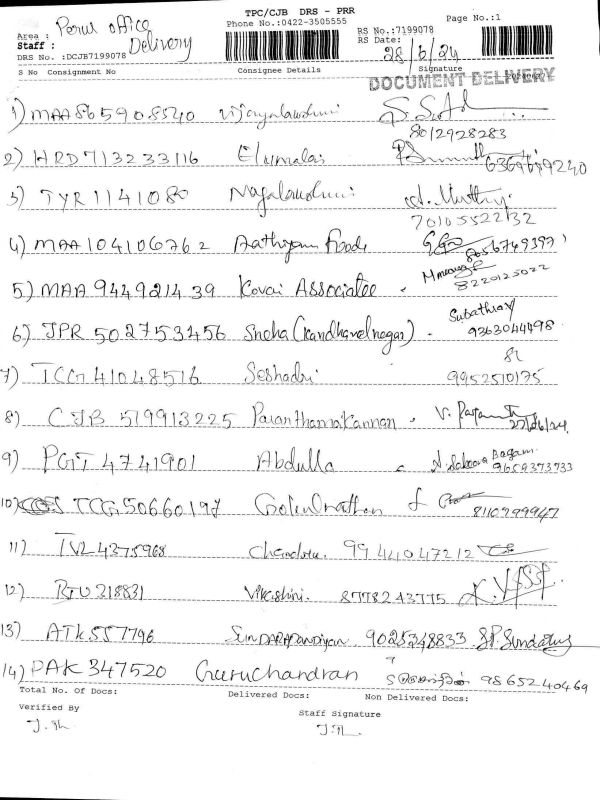 TPC/CJB DRS - PRR
Phone No.:0422-3505555 Page No.:1
Area : Perur office RS No.:7199078
Staff : Delivery RS Date: 28/6/24
DRS No. :DCJB7199078 Signature
S No Consignment No Consignee Details
DOCUMENT DELIVERY
1) MAA865908540 Vijayalakshmi
8012928283
2) HRD713233116 Elumalai 6369619240
3) TYR1141080 Nagalakshmi
7016552232
4) MAA104106762 Aathiyam Foods 8056749397
5) MAA944921439 Kovai Associatee 8220125022
6) JPR 502753456 Sneha (Kandhavelnagar) Subathra
9363044498
7) TCG41048516 Seshadri 9952510175
8) CJB 519913225 Paranthamakannan
9) PGT 4741901 Abdulla 9659373733
10) TCG50660197 Gokulnathan 8110299947
11) TVL4375968 Chandru. 9944047212
12) BTU218831 Vikashini. 8778243775
13) ATK557796 SUNDARAPANDIYAN 9025348833
14) PAK347520 Guruchandran 9865240469
Total No. Of Docs: Delivered Docs: Non Delivered Docs:
Verified By Staff Signature